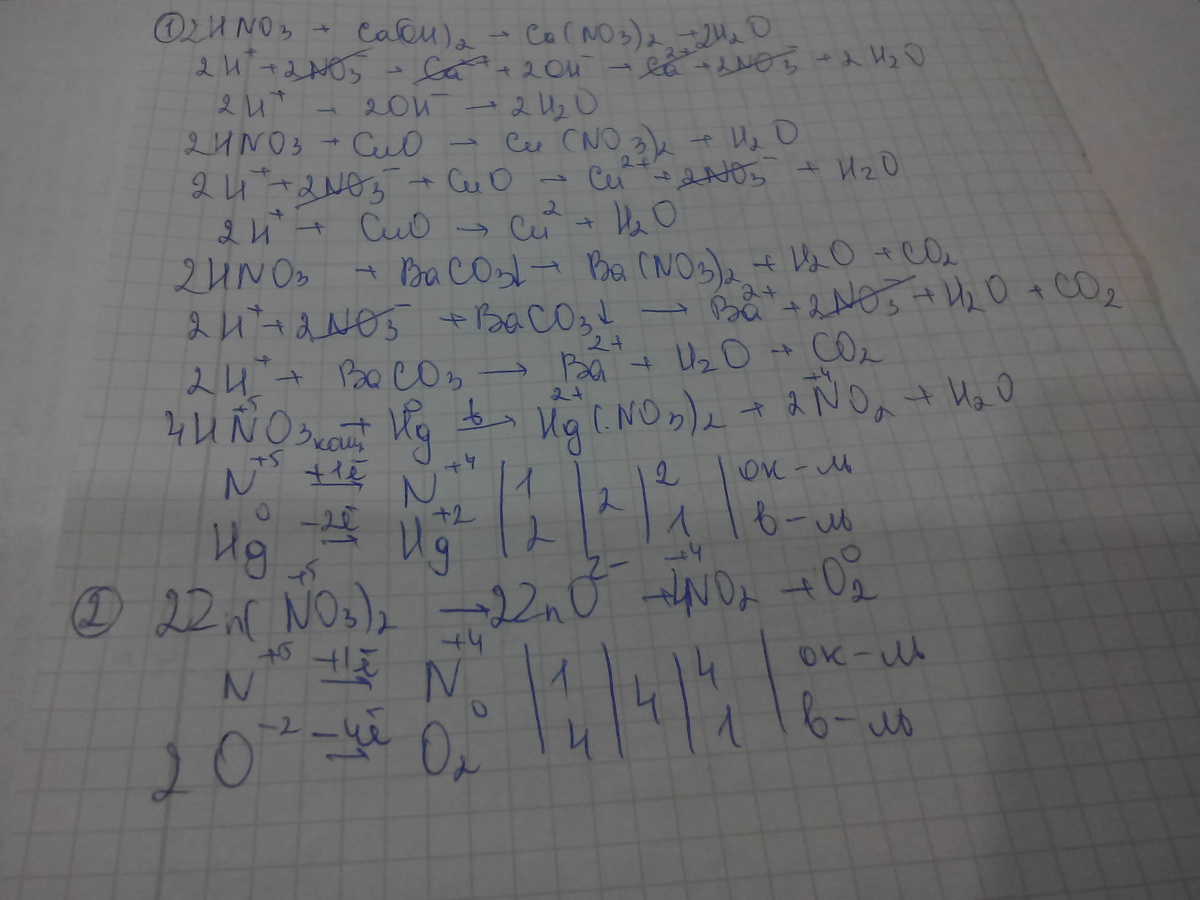 ① 2HNO₃ + Ca(OH)₂ → Ca(NO₃)₂ + 2H₂O
2H⁺ + 2NO₃⁻ + Ca²⁺ + 2OH⁻ → Ca²⁺ + 2NO₃⁻ + 2H₂O
2H⁺ - 2OH⁻ → 2H₂O
2HNO₃ + CuO → Cu(NO₃)₂ + H₂O
2H⁺ + 2NO₃⁻ + CuO → Cu²⁺ + 2NO₃⁻ + H₂O
2H⁺ + CuO → Cu² + H₂O
2HNO₃ + BaCO₃↓ → Ba(NO₃)₂ + H₂O + CO₂
2H⁺ + 2NO₃⁻ + BaCO₃↓ → Ba²⁺ + 2NO₃⁻ + H₂O + CO₂
2H⁺ + BaCO₃ → Ba²⁺ + H₂O + CO₂
4HN⁺⁵O₃ конц + Hg⁰ →ᵗ Hg²⁺(NO₃)₂ + 2N⁺⁴O₂ + H₂O
N⁺⁵ +1ē → N⁺⁴ | 1 | 2 | 2 | ок-ль
Hg⁰ -2ē → Hg⁺² | 2 | | 1 | в-ль
② 2Zn(N⁺⁵O₃)₂ → 2ZnO²⁻ + 4N⁺⁴O₂ + O₂⁰
N⁺⁵ +1ē → N⁺⁴ | 1 | 4 | 4 | ок-ль
2O⁻² -4ē → O₂⁰ | 4 | | 1 | в-ль